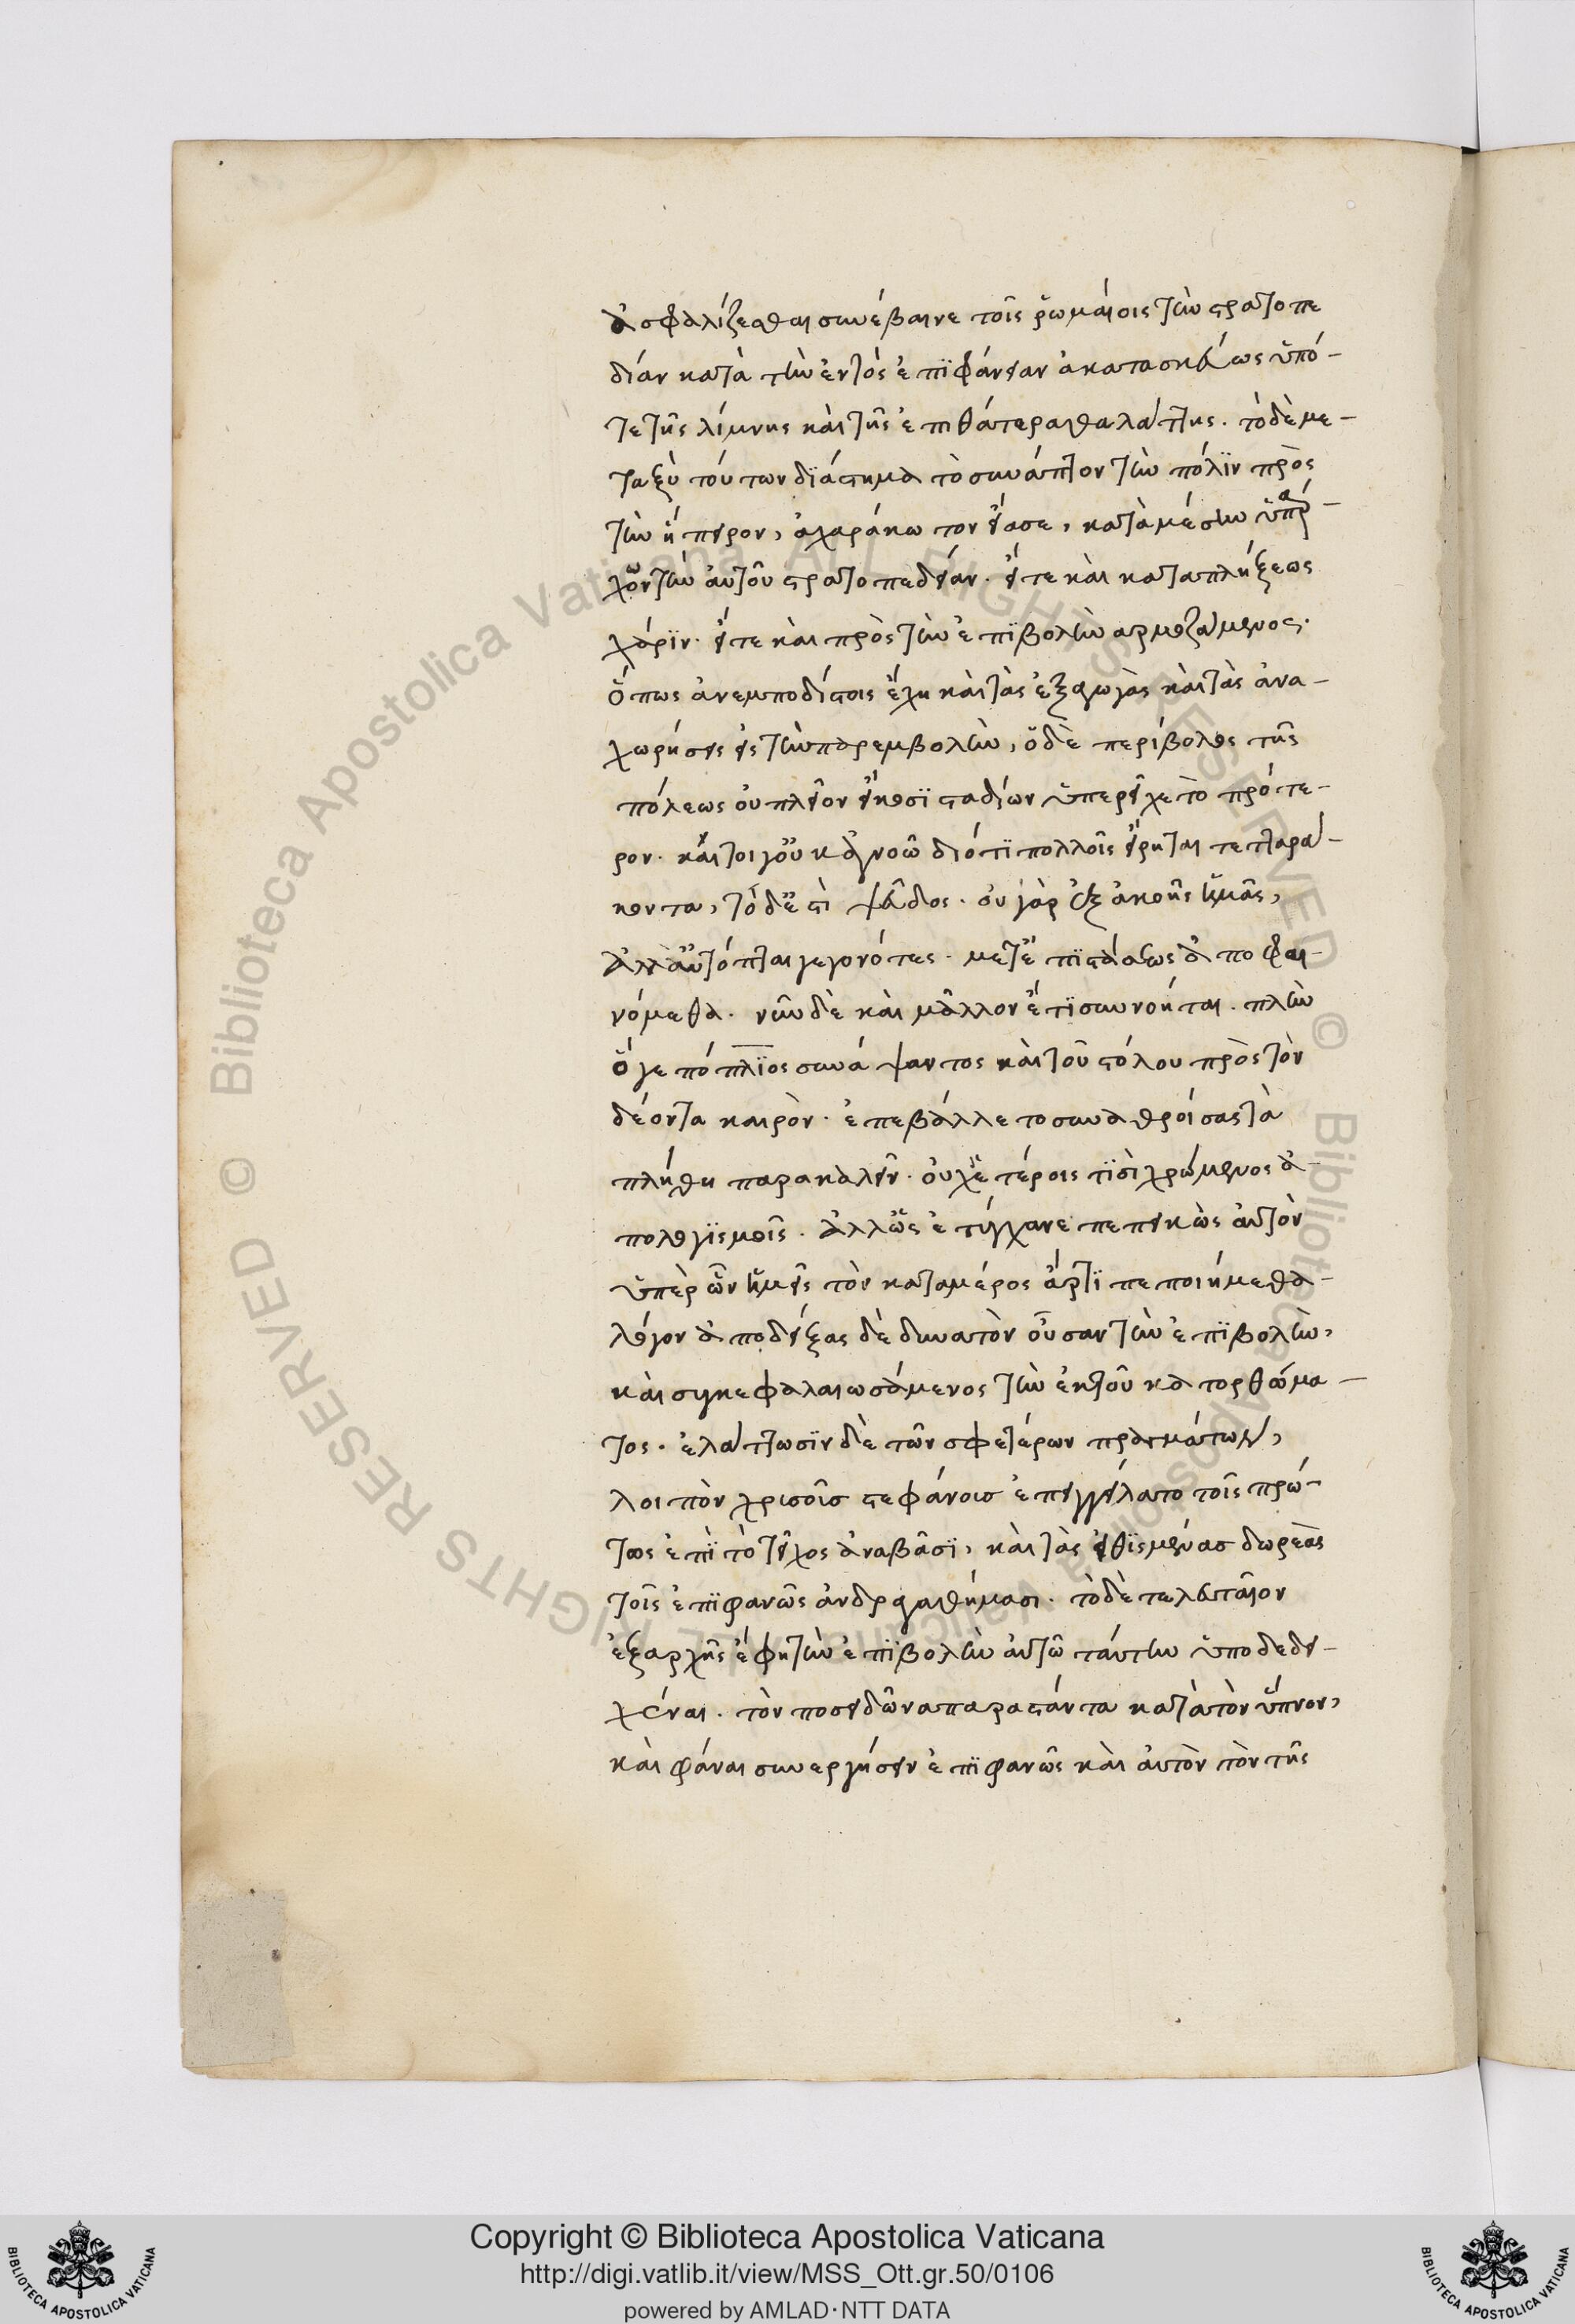 ἀσφαλίζεσθαι συνέβαινε τοῖς ῥωμαίοις τὴν στρατοπε
δίαν κατὰ τὴν ἐντὸς ἐπιφάνειαν ἀκατασκεύως ὑπό-
τε τῆς λίμνης καὶ τῆς ἐπι θάτερα θαλάττης. τὸ δὲ με-
ταξὺ τούτων διάστημα τὸ συνάπτον τὴν πόλιν πρὸς
τὴν ἤπειρον, ἀχαράκωτον εἴασε, κατὰ μέσην ὑπάρ-
χον τὴν αὐτοῦ στρατοπεδείαν. εἴτε καὶ καταπλήξεως
χάριν. εἴτε καὶ πρὸς τὴν ἐπιβολὴν αρμοζάμενος.
ὅπως ἀνεμποδίστοις ἔχη καὶ τὰς ἐξαγωγὰς καὶ τὰς ἀνα-
χωρήσεις εἰς τὴν παρεμβολὴν, ὁ δὲ περίβολος τῆς
πόλεως οὐ πλεῖον εἴκοσι σταδίων ὑπερεῖχε τὸ πρότε-
ρον. καίτοι γ' οὐκ ἀγνοῶ διότι πολλοῖς εἴρηται τετταρά-
κοντα, τὸ δ' ἔστι ψεῦδος. οὐ γὰρ ἐξ ἀκοῆς ἡμᾶς,
ἀλλ' αὐτόπται γεγονότες. μετ' ἐπιστάσεως ἀποφαι-
νόμεθα. νῦν δὲ καὶ μᾶλλον ἔτι συννοήται. πλὴν
ὅγε πόπλιος συνάψαντος καὶ τοῦ στόλου πρὸς τὸν
δέοντα καιρὸν. ἐπεβάλλετο συναθροίσας τὰ
πλήθη παρακαλεῖν. οὐχ ἑτέροις τισὶ χρώμενος ἀ-
πολογισμοῖς. ἀλλ' οἷς ἐτύγχανε πεπεικὼς αὑτὸν
ὑπὲρ ὧν ἡμεῖς τὸν καταμέρος ἄρτι πεποιήμεθα-
λόγον ἀποδείξας δὲ δυνατὸν οὖσαν τὴν ἐπιβολὴν,
καὶ συγκεφαλαιωσάμενος τὴν ἐκ τοῦ κατορθώμα-
τος. ἐλάττωσιν δὲ τῶν σφετέρων πραγμάτων,
λοιπὸν χρισοῖσ στεφάνοισ ἐπειγγείλατο τοῖς πρώ-
τοις ἐπὶ τὸ τεῖχος ἀναβᾶσι, καὶ τὰς εἰθισμένασ δωρεὰς
τοῖς ἐπιφανῶς ἀνδραγαθήμασι. τὸ δὲ τελευταῖον
ἐξαρχῆς ἔφη τὴν ἐπιβολὴν αὐτῶ ταύτην ὑποδεδει-
χέναι. τὸν ποσειδῶνα παραστάντα κατὰ τὸν ὕπνον,
καὶ φάναι συνεργήσειν ἐπιφανῶς κὰι ἀυτὸν τὸν τῆς
Copyright © Biblioteca Apostolica Vaticana
http://digi.vatlib.it/view/MSS_Ott.gr.50/0106
powered by AMLAD·NTT DATA